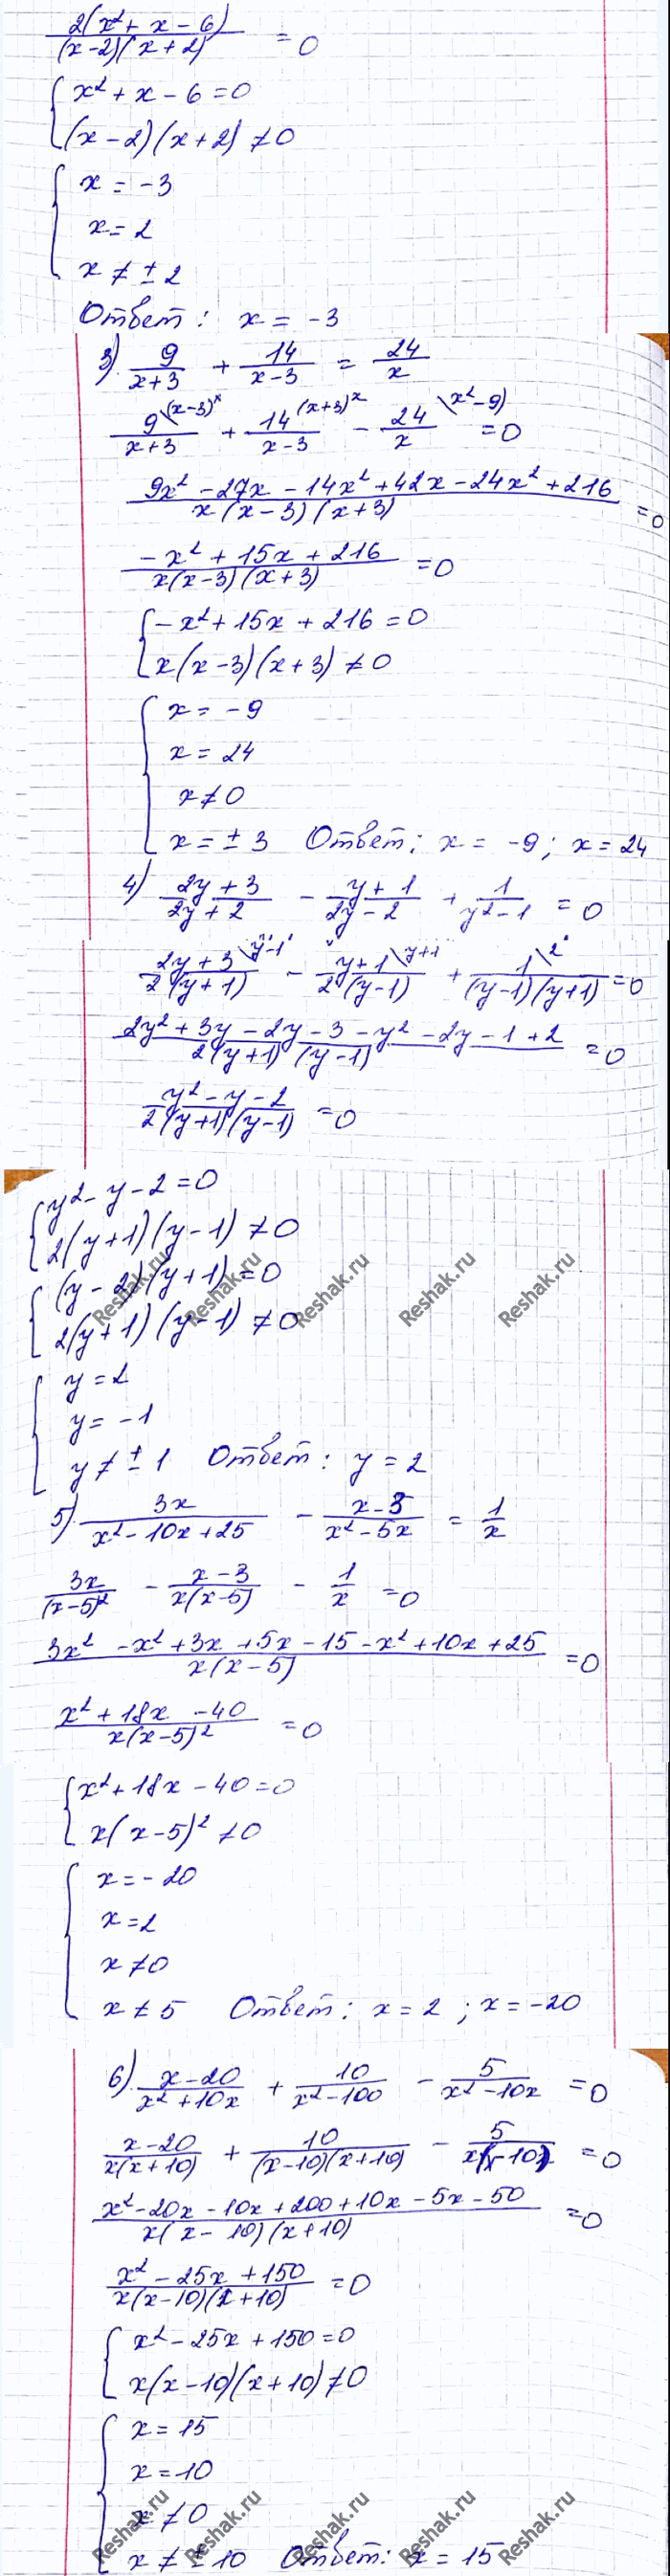 2(x² + x - 6) / (x-2)(x+2) = 0
{ x² + x - 6 = 0
(x-2)(x+2) ≠ 0
{ x = -3
x = 2
x ≠ ± 2
Ответ: x = -3
3) 9/(x+3) + 14/(x-3) = 24/x
9\(x-3)x/(x+3) + 14(x+3)x/(x-3) - 24\(x²-9)/x = 0
9x² - 27x - 14x² + 42x - 24x² + 216 / x(x-3)(x+3) = 0
-x² + 15x + 216 / x(x-3)(x+3) = 0
{ -x² + 15x + 216 = 0
x(x-3)(x+3) ≠ 0
{ x = -9
x = 24
x ≠ 0
x = ± 3 Ответ: x = -9; x = 24
4) (2y+3)/(2y+2) - (y+1)/(2y-2) + 1/(y²-1) = 0
2y+3\y-1 / 2(y+1) - y+1\y+1 / 2(y-1) + 1\2 / (y-1)(y+1) = 0
2y² + 3y - 2y - 3 - y² - 2y - 1 + 2 / 2(y+1)(y-1) = 0
y² - y - 2 / 2(y+1)(y-1) = 0
{ y² - y - 2 = 0
2(y+1)(y-1) ≠ 0
{ (y-2)(y+1) = 0
2(y+1)(y-1) ≠ 0
Reshak.ru Reshak.ru Reshak.ru Reshak.ru Reshak.ru
{ y = 2
y = -1
y ≠ ± 1 Ответ: y = 2
5) 3x/(x²-10x+25) - (x-3)/(x²-5x) = 1/x
3x/(x-5)² - (x-3)/x(x-5) - 1/x = 0
3x² - x² + 3x + 5x - 15 - x² + 10x + 25 / x(x-5) = 0
x² + 18x - 40 / x(x-5)² = 0
{ x² + 18x - 40 = 0
x(x-5)² ≠ 0
{ x = -20
x = 2
x ≠ 0
x ≠ 5 Ответ: x = 2; x = -20
6) (x-20)/(x²+10x) + 10/(x²-100) - 5/(x²-10x) = 0
(x-20)/x(x+10) + 10/(x-10)(x+10) - 5/x(x-10) = 0
x² - 20x - 10x + 200 + 10x - 5x - 50 / x(x-10)(x+10) = 0
x² - 25x + 150 / x(x-10)(x+10) = 0
{ x² - 25x + 150 = 0
x(x-10)(x+10) ≠ 0
{ x = 15
x = 10
x ≠ 0
x ≠ ± 10 Ответ: x = 15
Reshak.ru Reshak.ru Reshak.ru Reshak.ru Reshak.ru